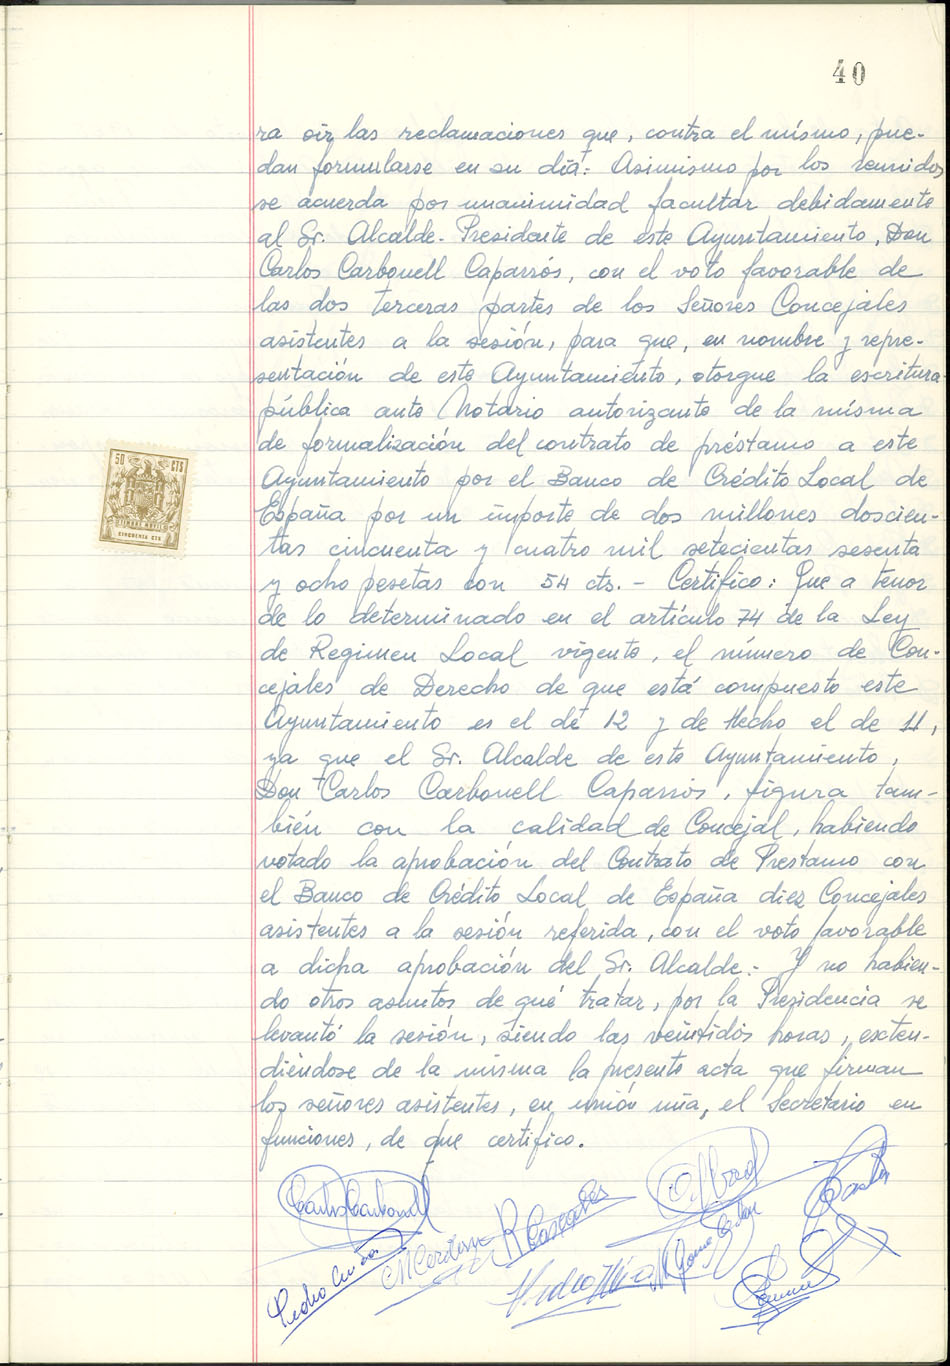 40
ra oír las reclamaciones que, contra el mismo, pue-
dan formularse en su día: Asimismo por los reunidos
se acuerda por unanimidad facultar debidamente
al Sr. Alcalde-Presidente de este Ayuntamiento, Don
Carlos Carbonell Caparrós, con el voto favorable de
las dos terceras partes de los Señores Concejales
asistentes a la sesión, para que, en nombre y repre-
sentación de este Ayuntamiento, otorgue la escritura
pública ante Notario autorizante de la misma
de formalización del contrato de préstamo a este
50 CTS
Ayuntamiento por el Banco de Crédito Local de
España por un importe de dos millones doscien-
TIMBRE MOVIL
CINCUENTA CTS
tas cincuenta y cuatro mil setecientas sesenta
y ocho pesetas con 54 cts. - Certifico: Que a tenor
de lo determinado en el artículo 74 de la Ley
de Regimen Local vigente, el número de Con-
cejales de Derecho de que está compuesto este
Ayuntamiento es el de 12 y de Hecho el de 11,
ya que el Sr. Alcalde de este Ayuntamiento,
Don Carlos Carbonell Caparrós, figura tam-
bién con la calidad de Concejal, habiendo
votado la aprobación del Contrato de Prestamo con
el Banco de Crédito Local de España diez Concejales
asistentes a la sesión referida, con el voto favorable
a dicha aprobación del Sr. Alcalde.- Y no habien-
do otros asuntos de qué tratar, por la Presidencia se
levantó la sesión, siendo las veintidós horas, exten-
diéndose de la misma la presente acta que firman
los señores asistentes, en unión mía, el Secretario en
funciones, de que certifico.
Carlos Carbonell
Pedro